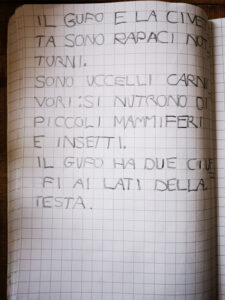 IL GUFO E LA CIVET
TA SONO RAPACI NOT
TURNI.
SONO UCCELLI CARNI
VORI: SI NUTRONO DI
PICCOLI MAMMIFERI
E INSETTI.
IL GUFO HA DUE CIUF
FI AI LATI DELLA
TESTA.